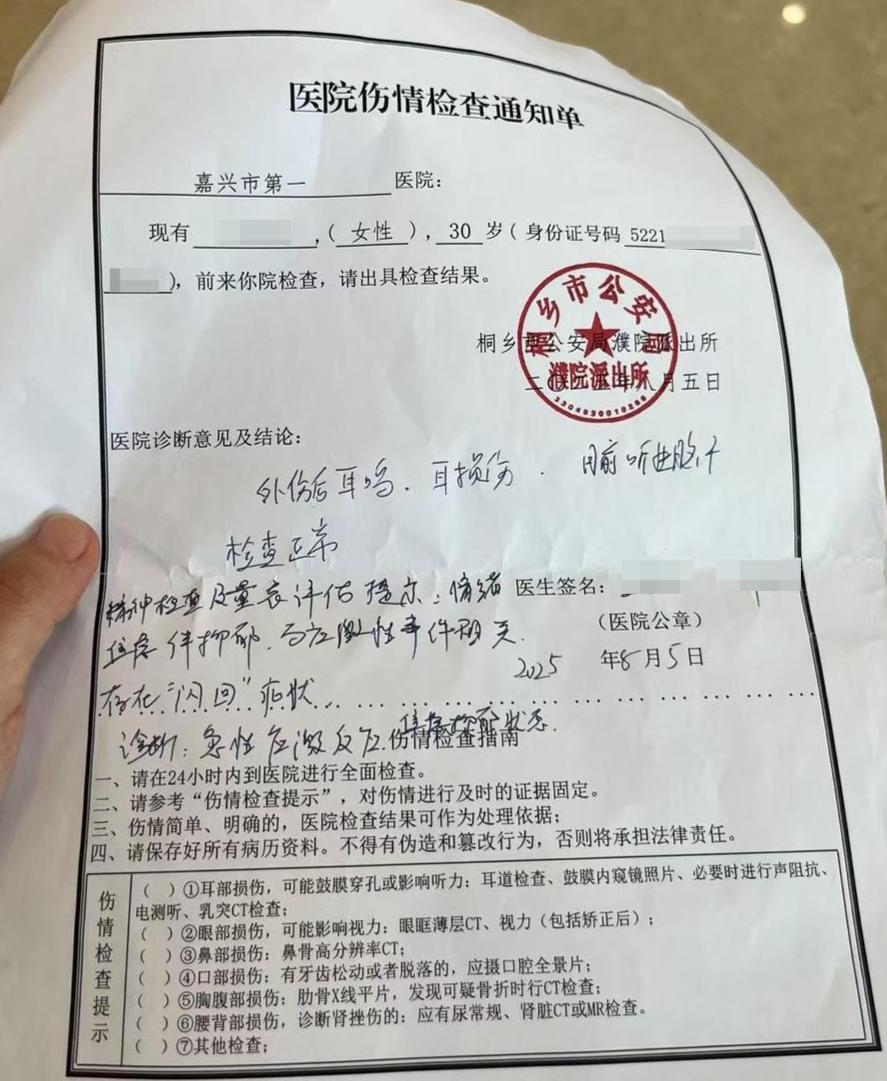 医院伤情检查通知单
嘉兴市第一 医院：
现有 ,( 女性 ), 30 岁( 身份证号码 5221
),前来你院检查，请出具检查结果。
桐乡市公安局濮院派出所
二〇二五年八月五日
桐乡市公安局
濮院派出所
医院诊断意见及结论：
外伤后耳鸣. 耳损伤. 目前听
检查正常
精神检查及量表评估提示：情绪 医生签名：
伴抑郁，与应激性事件相关. （医院公章）
2025 年8月5日
存在“闪回”症状
诊断：急性应激反应. 焦虑抑郁状态.
伤情检查指南
一、请在24小时内到医院进行全面检查。
二、请参考“伤情检查提示”，对伤情进行及时的证据固定。
三、伤情简单、明确的，医院检查结果可作为处理依据；
四、请保存好所有病历资料。不得有伪造和篡改行为，否则将承担法律责任。
伤情检查提示
( ) ①耳部损伤，可能鼓膜穿孔或影响听力：耳道检查、鼓膜内窥镜照片、必要时进行声阻抗、
电测听、乳突CT检查；
( ) ②眼部损伤，可能影响视力：眼眶薄层CT、视力（包括矫正后）；
( ) ③鼻部损伤：鼻骨高分辨率CT；
( ) ④口部损伤：有牙齿松动或者脱落的，应摄口腔全景片；
( ) ⑤胸腹部损伤：肋骨X线平片，发现可疑骨折时行CT检查；
( ) ⑥腰背部损伤，诊断肾挫伤的：应有尿常规、肾脏CT或MR检查。
( ) ⑦其他检查；